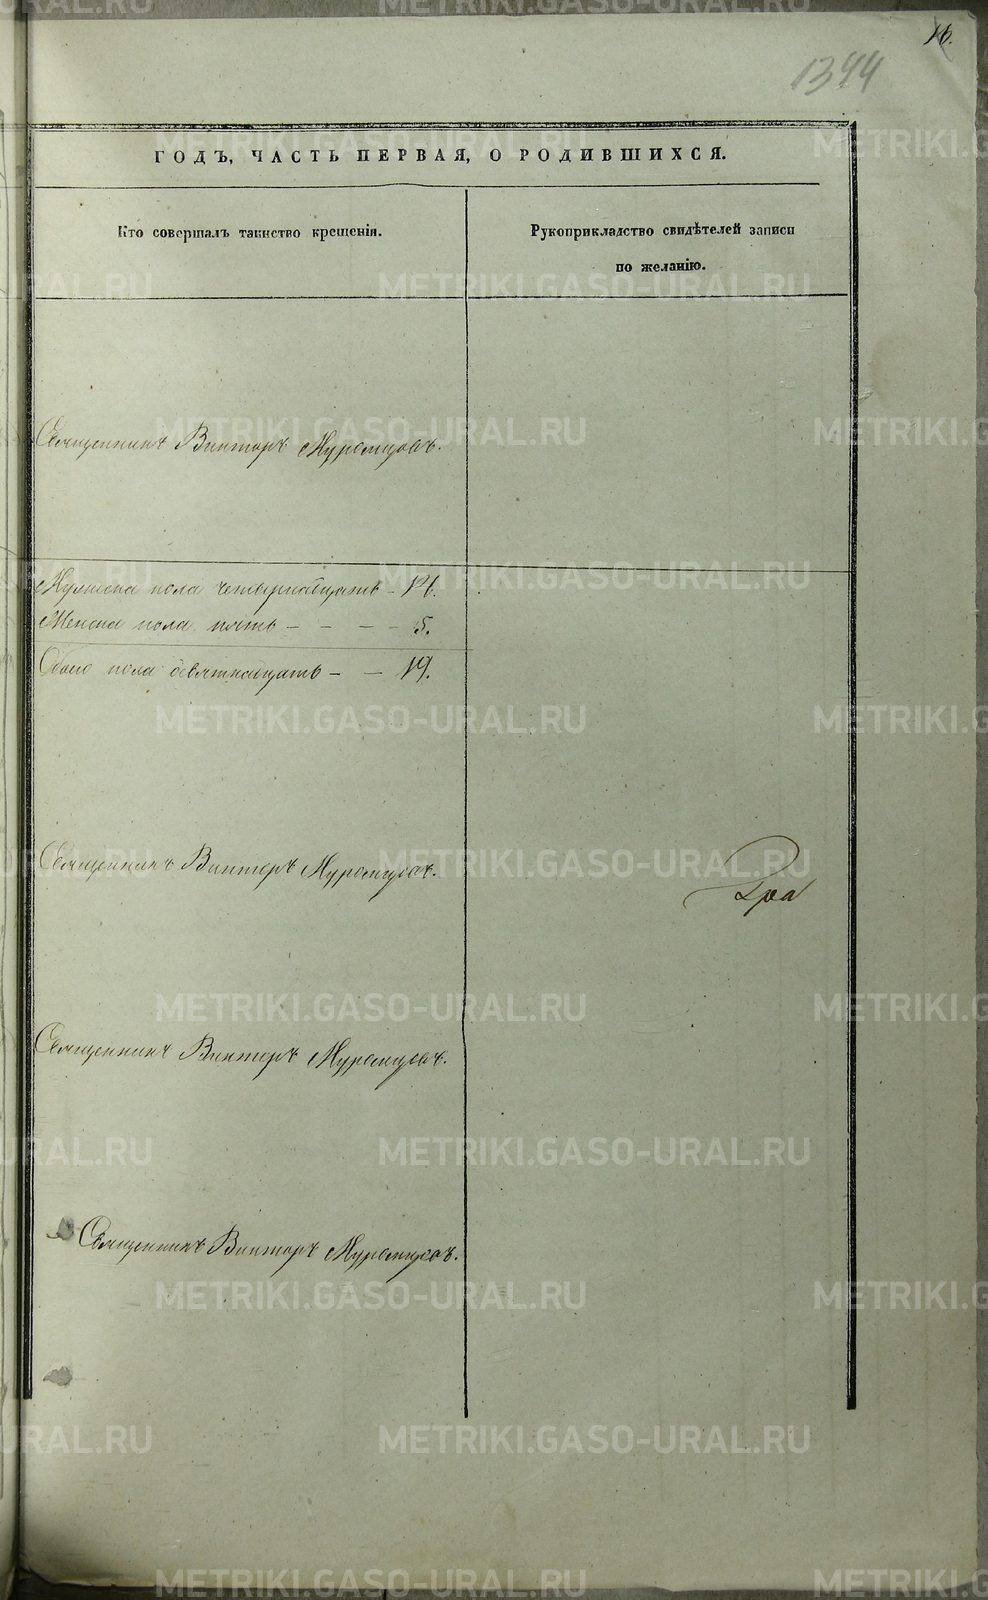 16.
1344
ГОДЪ, ЧАСТЬ ПЕРВАЯ, О РОДИВШИХСЯ.
Кто совершалъ таинство крещенія.
Рукоприкладство свидѣтелей записи
по желанію.
Священникъ Викторъ Муромцовъ.
Мужеска пола четырнадцать – 14.
Женска пола пять – – – – 5.
Обоего пола девятнадцать – – 19.
Священникъ Викторъ Муромцовъ.
Священникъ Викторъ Муромцовъ.
Священникъ Викторъ Муромцовъ.
METRIKI.GASO-URAL.RU